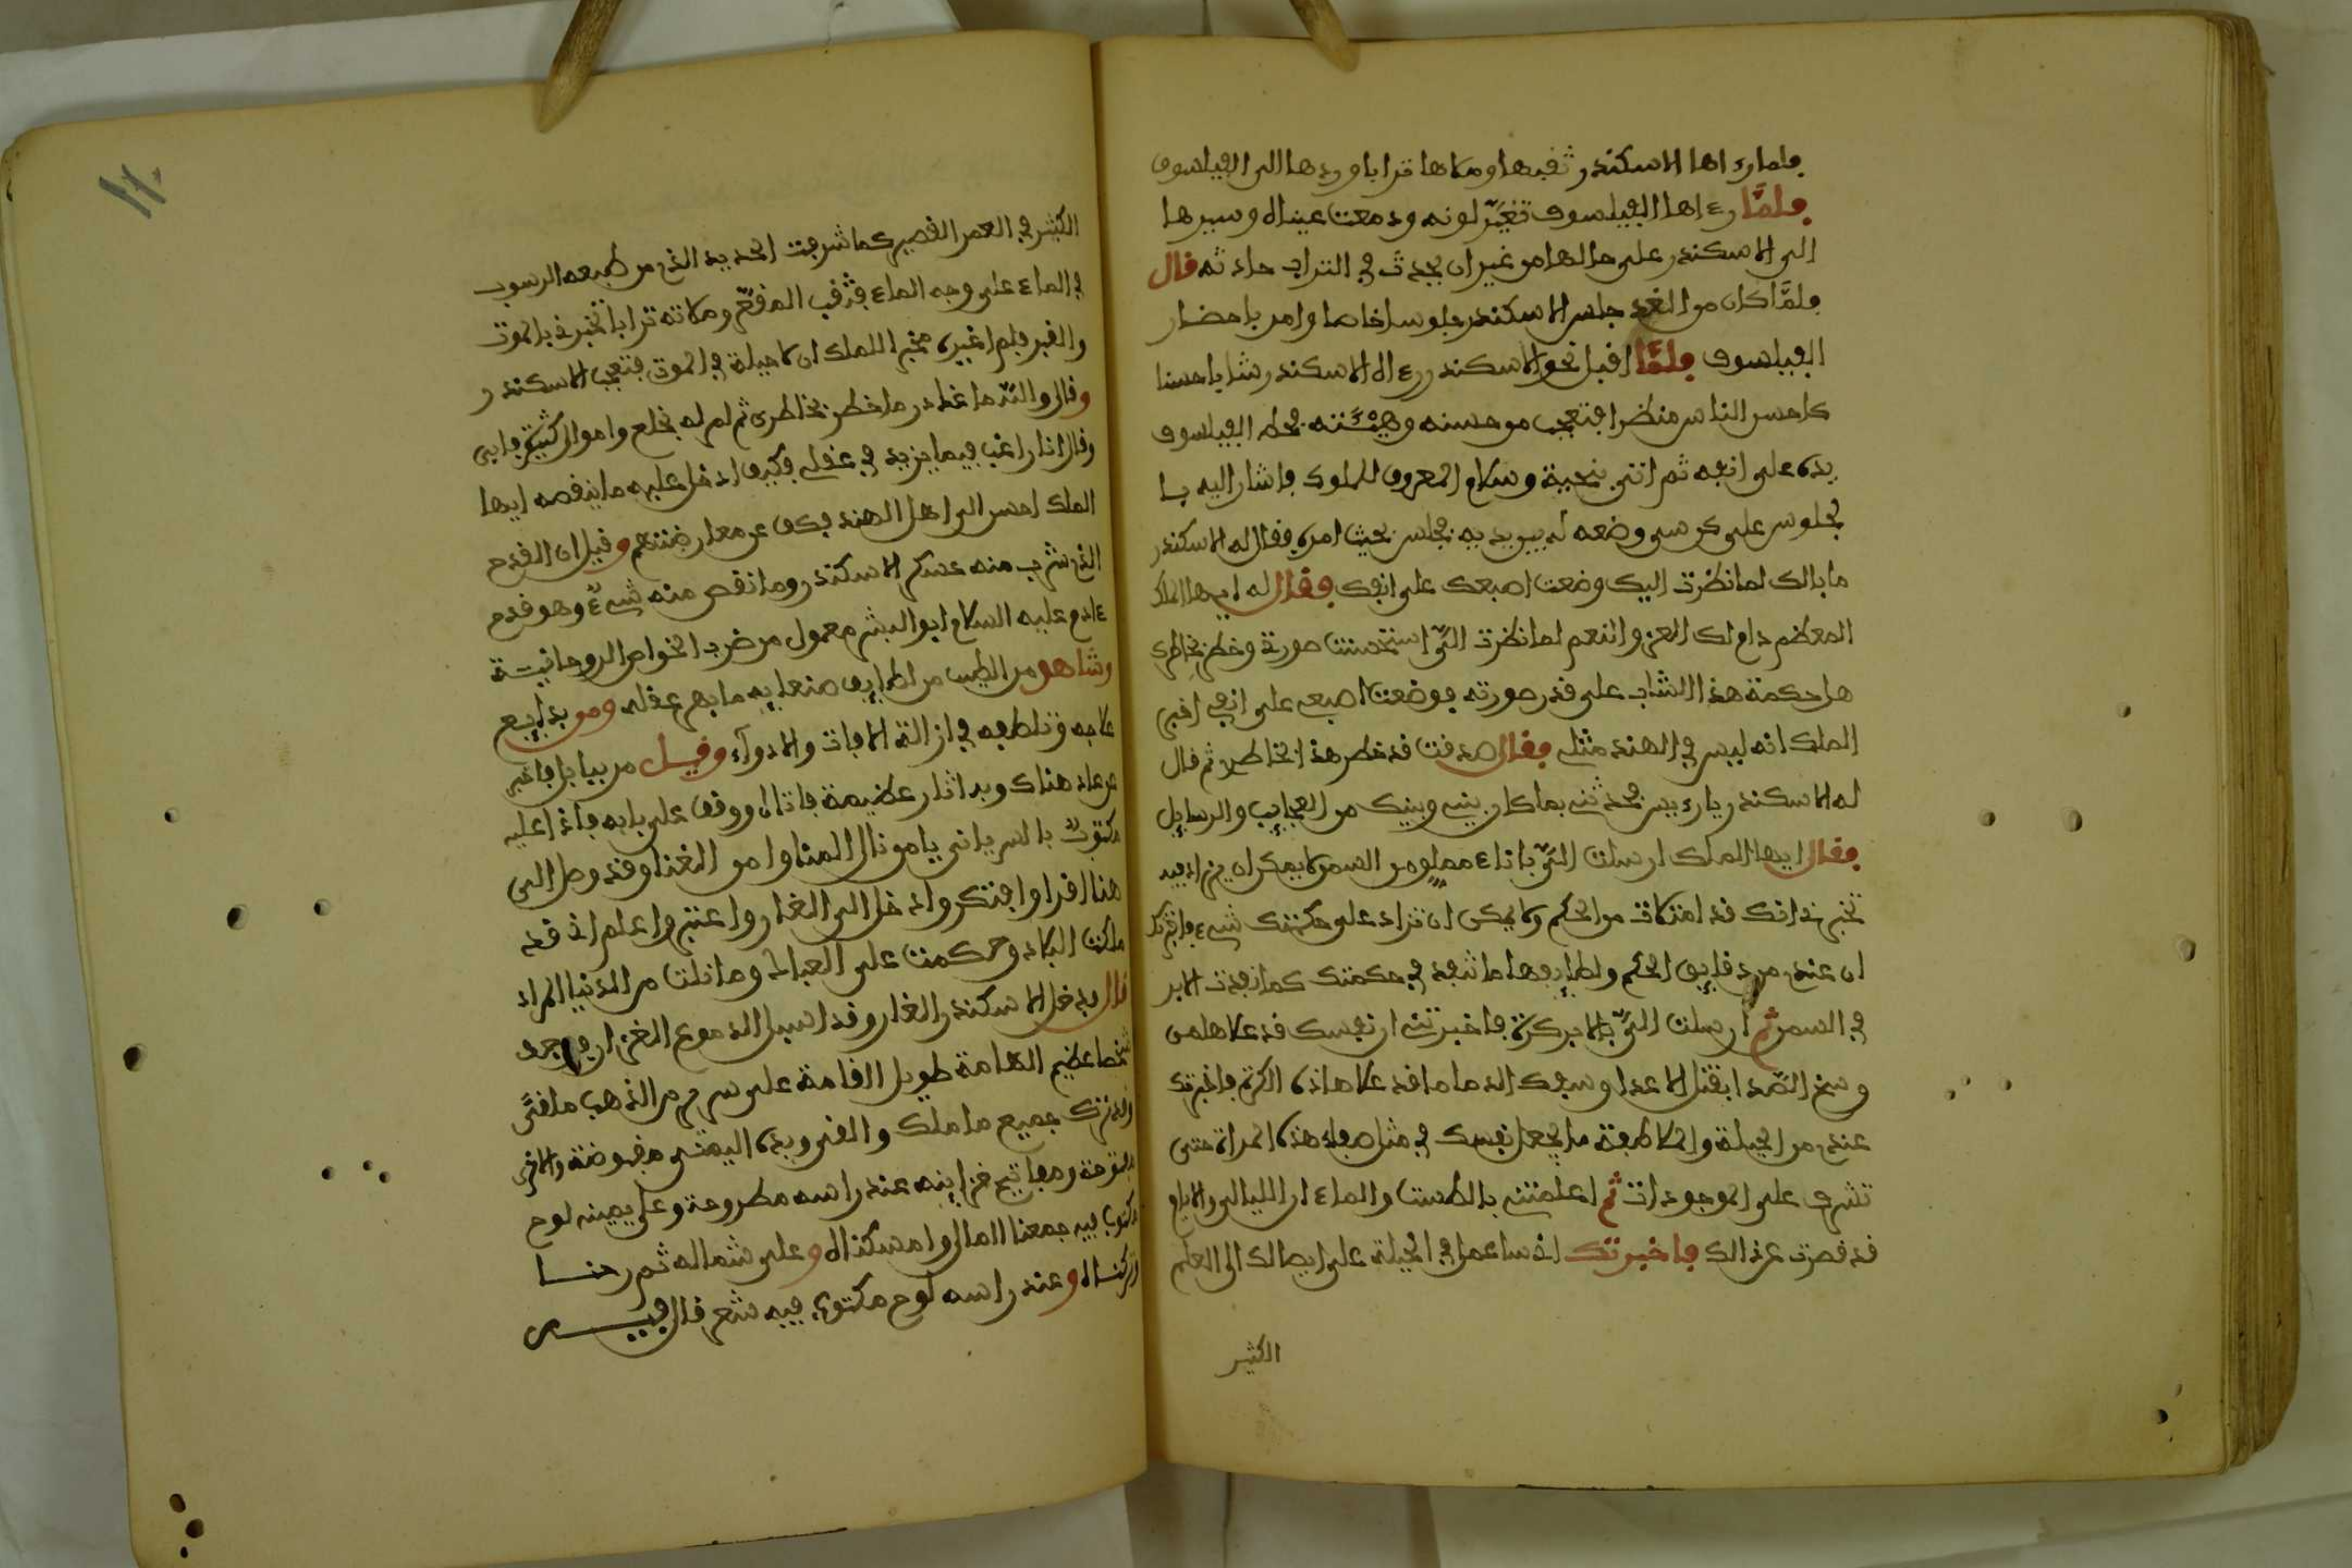 فلما رءاها الاسكندر ثقبها وملاها ترابا وردها الى الفيلسوف
فلمَّا رءاها الفيلسوف تغيَّر لونه ودمعت عيناه وسيرها
الى الاسكندر على حالها من غير ان يحدث في التراب حادثه قال
فلمَّا كان من الغد جلس الاسكندر جلوسا خاصا وامر باحضار
الفيلسوف فلمَّا اقبل نحو الاسكندر رءاه الاسكندر شابا حسنا
كاحسن الناس منظرا فتعجب من حسنه وهيئته فحط الفيلسوف
يده على انفه ثم اتى بتحية وسلام المعروف للملوك فاشار اليه با
لجلوس على كرسي وضعه له بين يديه فجلس بحيث امره فقال له الاسكندر
ما بالك لما نظرت اليك وضعت اصبعك على انفك فقال له ايها الملك
المعظم دام لك العز والنعم لما نظرت اليَّ استحسنت صورتي وخطر بخاطرك
هل حكمة هذا الشاب على قدر صورته فوضعت اصبعي على انفي اخبر
الملك انه ليس في الهند مثلي فقال صدقت قد خطر هذا بخاطري ثم قال
له الاسكندر يا رءيس فحدثني بما كان بيني وبينك من العجايب والرسايل
فقال ايها الملك ارسلت اليَّ باناء مملو من السمن لا يمكن ان يزاد فيه
تخبرني انك قد امتلات من الحكم ولا يمكن ان تزاد على حكمتك شيء فاخبرتك
ان عندي من دقايق الحكم ولطايفها ما تنفذ في حكمتك كما نفذت الابر
في السمن ثم ارسلت اليَّ بالابر كرة فاخبرتني ان نفسك قد علاها من
وسخ الصدا بقتل الاعدا وسفك الدما ما قد علا هاذه الكرة فاخبرتك
عندي من الحيلة والملاطفة ما يجعل نفسك في مثل صفاء هذه المراة حتى
تشرف على الموجودات ثم اعلمتني بالطست والماء ان الليالي والايام
قد قصرت عن ذالك فاخبرتك اني ساعمل في الحيلة على ايصالك الى العلم
الكثير
الكثير في العمر القصير كما شرفت الحديد الذي من طبعه الرسوب
في الماء على وجه الماء فثقب المقعر وملاته ترابا تخبرني بالموت
والقبر فلم اغيره مخبر الملك ان لا حيلة في الموت فتعجب الاسكندر
وقال والله ما غادر ما خطر بخاطري ثم امر له بخلع واموال كثيرة فابى
وقال انا راغب فيما يزيد في عقلي فكيف ادخل عليه ما ينقصه ايها
الملك احسن الى اهل الهند فكف عن معارضتهم وقيل ان القدح
الذي شرب منه عسكر الاسكندر وما نقص منه شيء وهو قدح
ءادم عليه السلام ابو البشر معمول من ضرب الخواص الروحانية
وشاهد من الطبيب من لطايف صنعا به ما بهر عقله ومن بدايع
علاجه وتلطفه في ازالة الافات والادواء وقيل مر ببابل فاخبر
عن غار هناك وبه اثار عظيمة فاتاه ووقف على بابه فاذا عليه
مكتوبٌ بالسرياني يا من نال المنا وامن الغنا وقد وصل الى
هنا اقرا وافتكر وادخل الى الغار واعتبر واعلم اني قد
ملكت البلاد وحكمت على العباد وما نلت من الدنيا المراد
قال فدخل الاسكندر الغار وقد اسبل الدموع الغزار فوجد
شخصا عظيم الهامة طويل القامة على سرير من الذهب ملقى
وقد ترك جميع ما ملك والقى ويده اليمنى مقبوضة والاخرى
مفتوحة ومفاتيح خزاينه عند راسه مطروحة وعلى يمينه لوح
مكتوب فيه جمعنا المال وامسكناه وعلى شماله ثم رحنا
وتركناه وعند راسه لوح مكتوب فيه شعر قال فيـــه